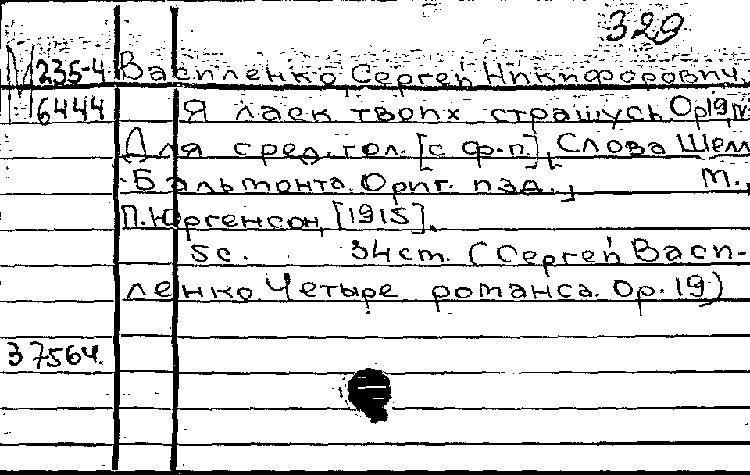 329
М 235-4 Василенко, Сергей Никифорович,
6444 Я ласк твоих страшусь. Op 19, IV
Для сред. гол. [с ф.-п.], Слова Шелл
-Бальмонта. Ориг. изд., М.,
П. Юргенсон, [1915].
5 с. 34 см. (Сергей Васи-
ленко. Четыре романса. Op. 19)
37564.